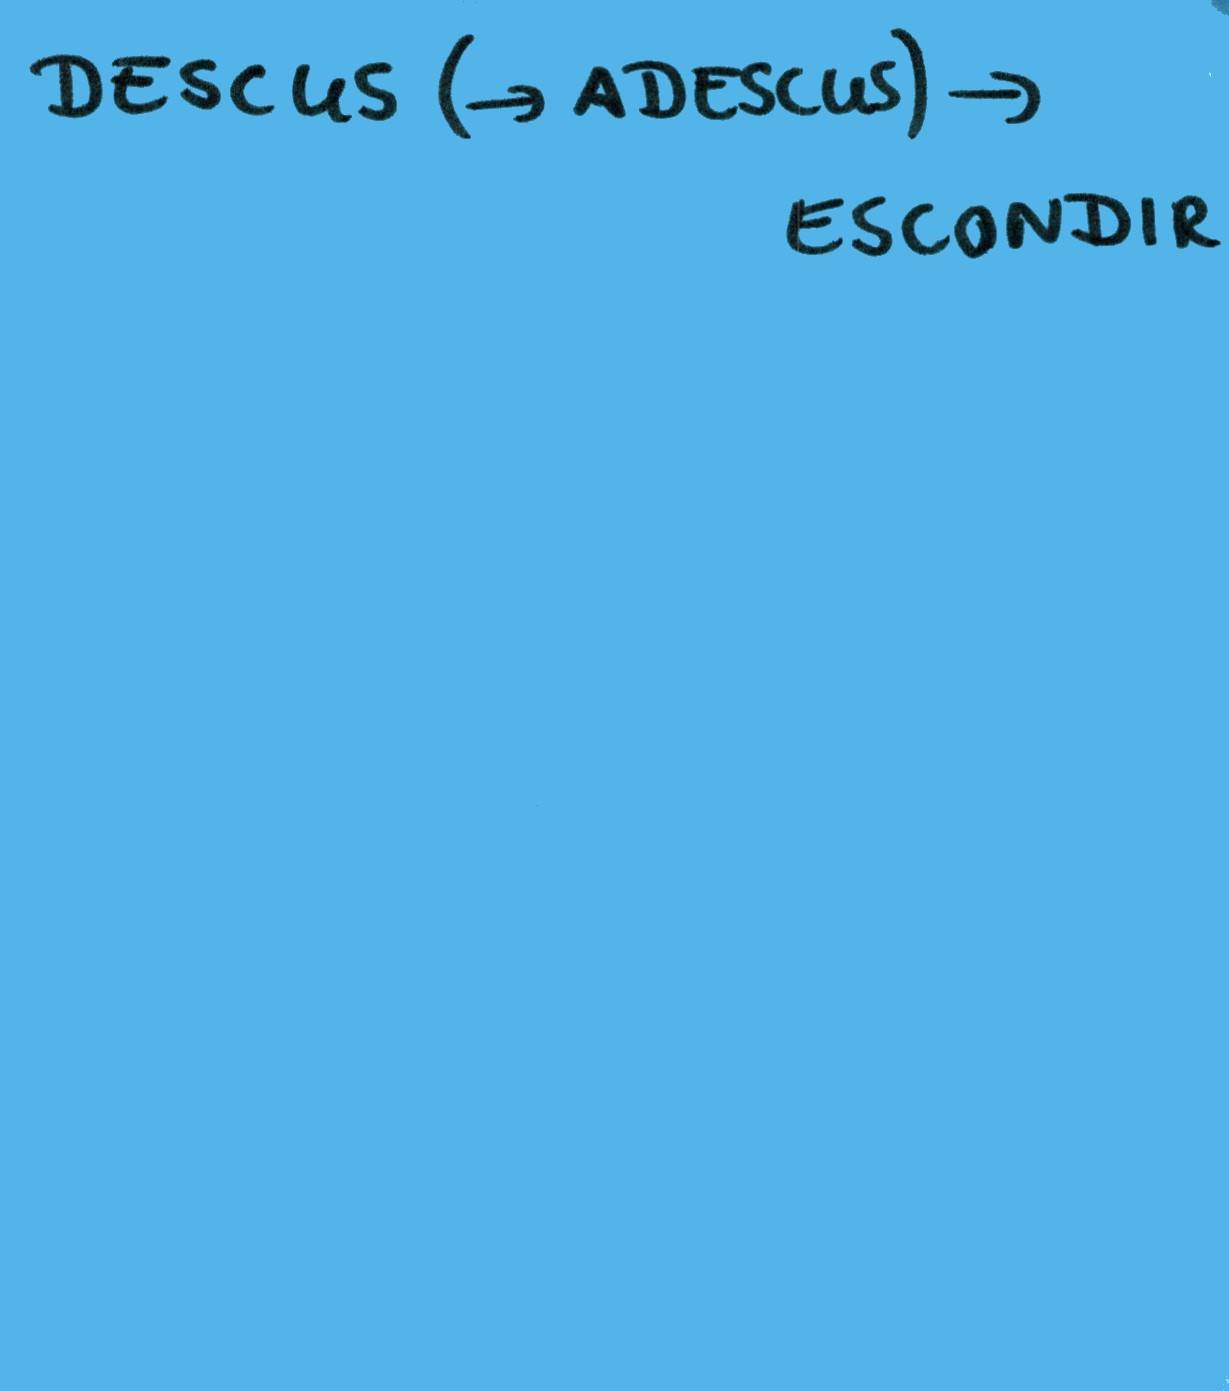 DESCUS (→ ADESCUS) →
ESCONDIR